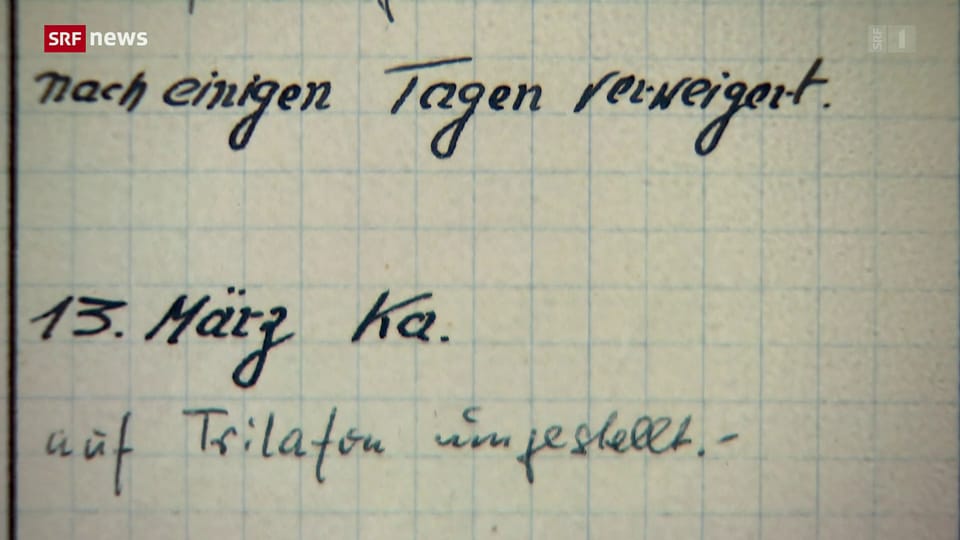 SRF news
SRF 1
nach einigen Tagen verweigert.
13. März Ka.
auf Trilafon umgestellt.-